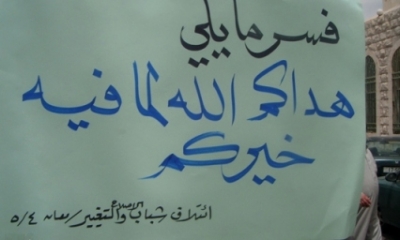 فسر مايلي
هداكم الله لما فيه
خيركم
ائتلاف شباب الاصلاح والتغيير / معان ٥/٤